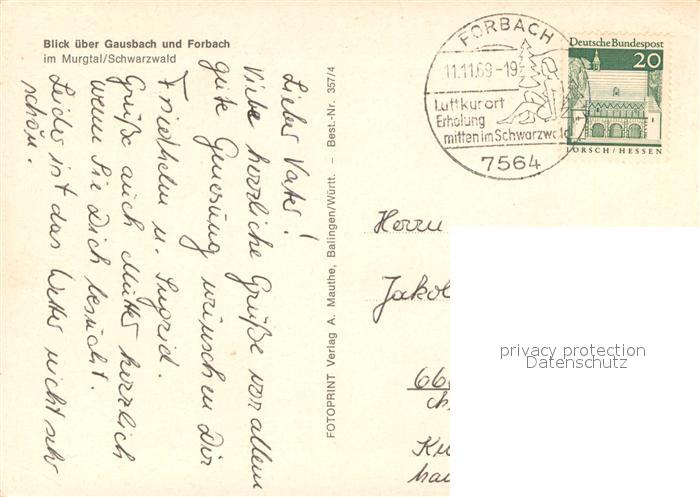 Blick über Gausbach und Forbach
im Murgtal/Schwarzwald
Lieber Vater!
Viele herzliche Grüße vor allem
gute Genesung wünschen Dir
Friedhelm u. Ingrid.
Grüße auch Mutter herzlich
wenn Sie Dich besucht.
Leider ist das Wetter nicht sehr
schön.
FOTOPRINT Verlag A. Mauthe, Balingen/Württ. – Best.-Nr. 357/4
FORBACH
11.11.69-19
Luftkurort
Erholung
mitten im Schwarzwald
7564
Deutsche Bundespost
20
LORSCH / HESSEN
Herrn
Jakob
66
privacy protection
Datenschutz